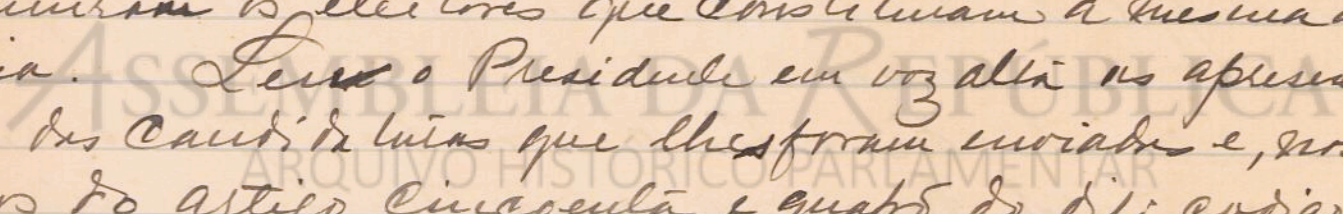 os eleitores que constituiam a mesma
ia. Leu o Presidente em voz alta as apresen
das candidaturas que lhes foram enviadas e, nos
os do artigo cincoenta e quatro do dito codigo
ASSEMBLEIA DA REPÚBLICA
ARQUIVO HISTÓRICO PARLAMENTAR